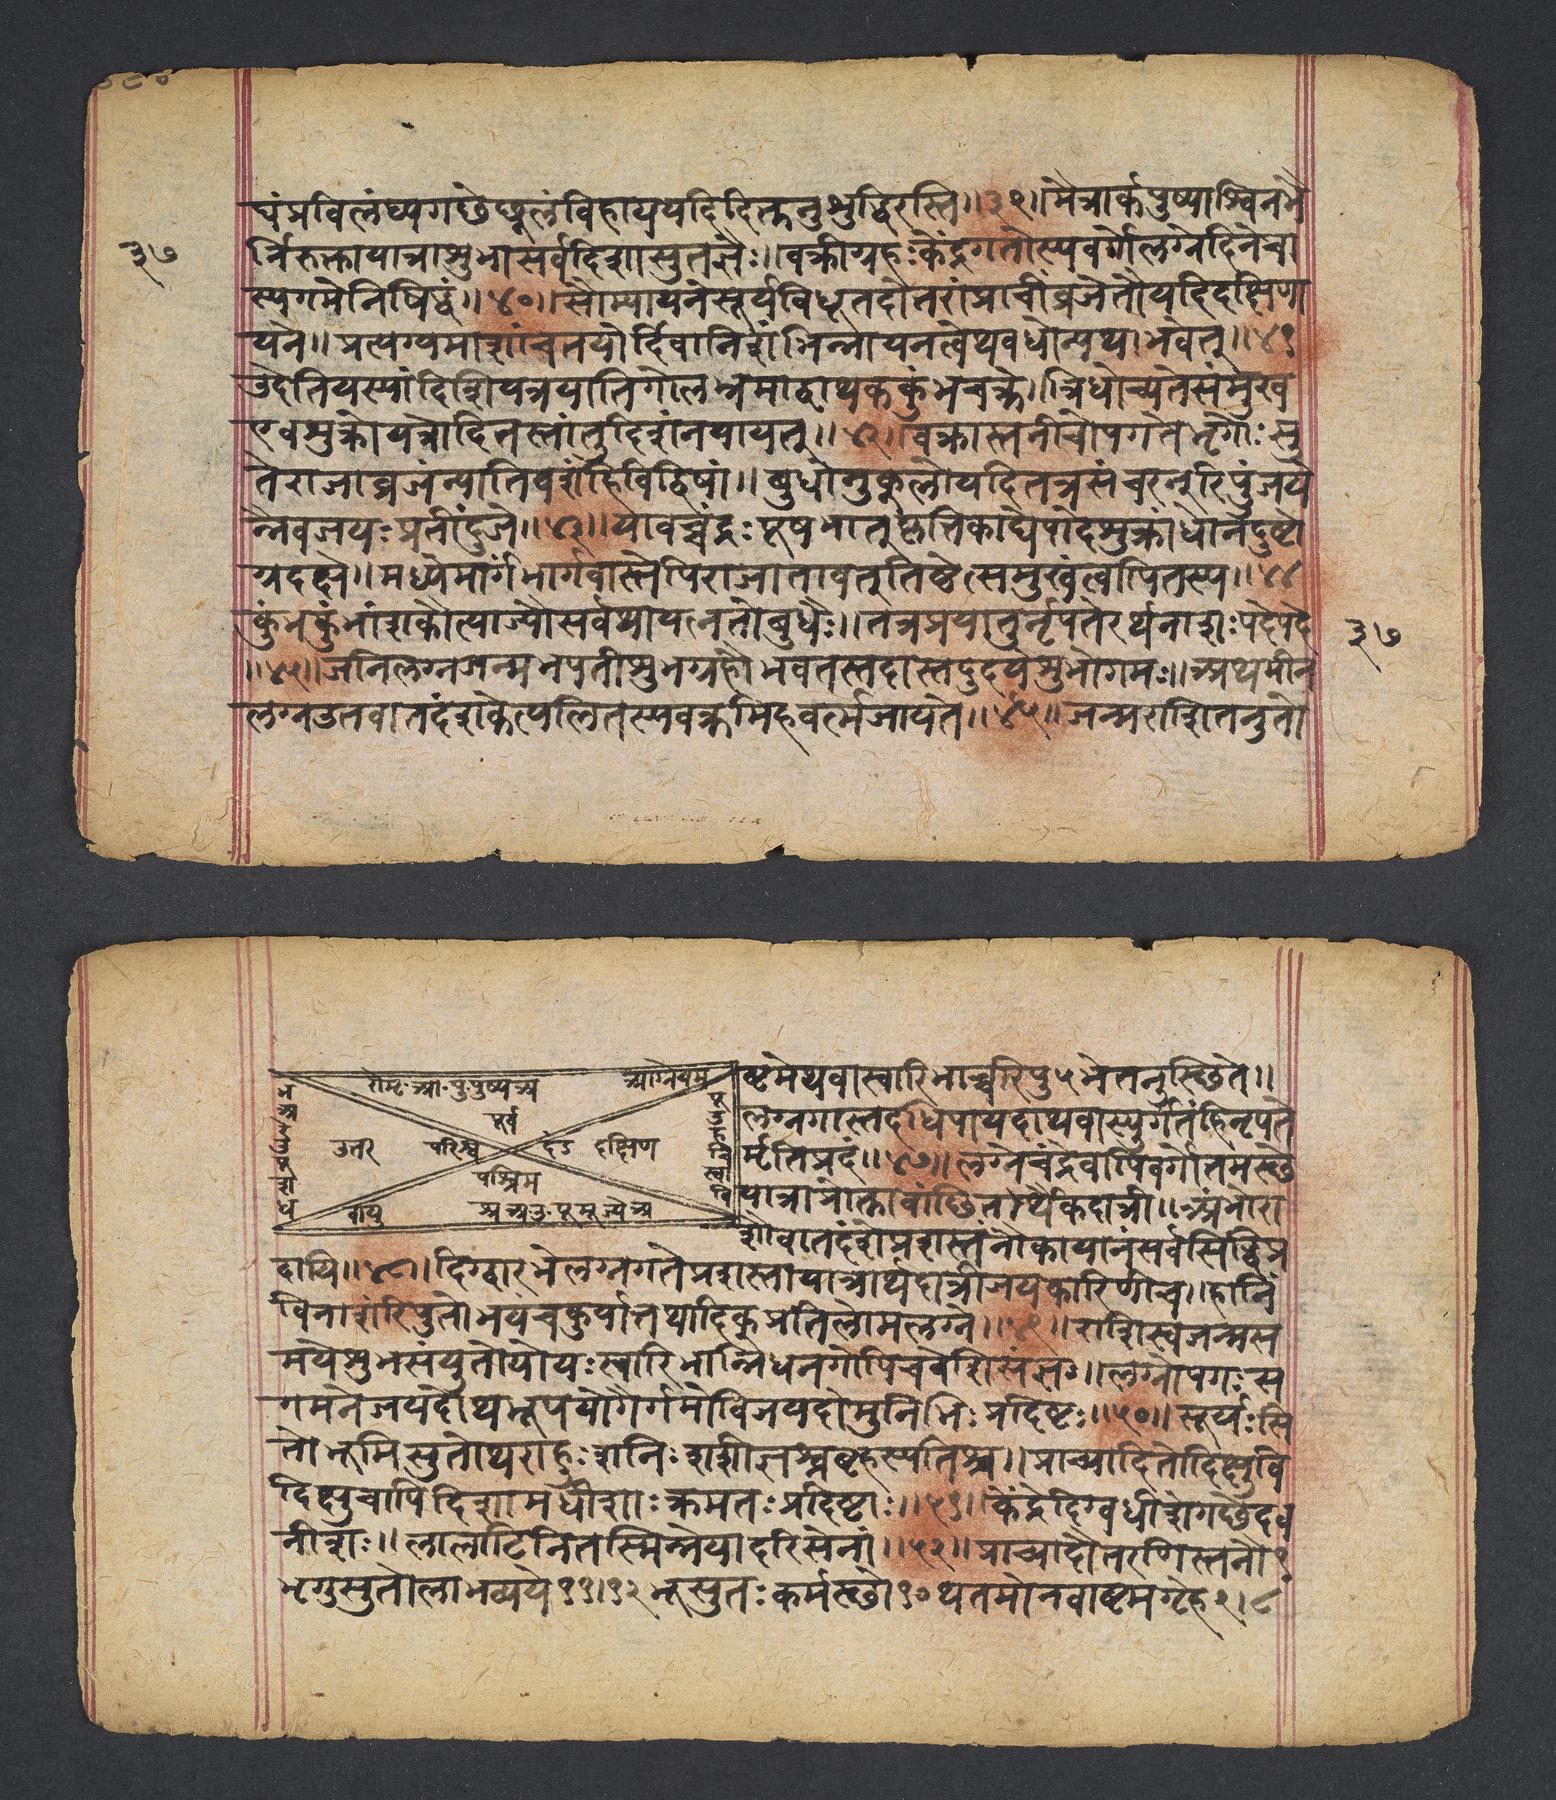 ३७
घंप्रविलंघ्यगछेछूलंविहाययदिदिक्तनुशुद्धिरस्ति॥३९॥मैत्रार्कपुष्पाश्विनभै
र्निरुक्तायात्राशुभासर्वदिशासुतज्ञैः॥वक्रीग्रहःकेंद्रगतोस्यवर्गोलग्नेदिनेचा
स्यगमेनिषिद्धं॥४०॥सौम्यायनेसूर्यविधूतदोतरांप्राचींव्रजेतौयदिदक्षिणा
यने॥प्रत्यग्यमाशांचतयोर्दिवानिशंभिन्नायनत्वेथवधोन्यथाभवेत्॥४१
उदेतियस्यांदिशियत्रयातिगोलभ्रमाद्वाथककुंभचक्रे॥त्रिधोच्यतेसंमुख
एवशुक्रोयत्रोदितस्तांतुदिशंनयायत्॥४२॥वक्रास्तनीचोपगतेभृगोःसु
तेराजाव्रजन्यातिवशंहिविद्विषां॥बुधोनुकूलोयदितत्रसंचरन्रिपुंजये
न्नैवजयःप्रतींदुजे॥४३॥यावच्चंद्रःपूषभात्कृत्तिकाद्येपादेशुक्रोंधोनदुष्टो
ग्रदक्षे॥मध्येमार्गंभार्गवास्तेपिराजातावत्तिष्ठेत्संमुखत्वेपितस्य॥४४
कुंभकुंभांशकौत्याज्यौसर्वथायत्नतोबुधैः॥तत्रप्रयातुर्नृपतेरर्थनाशःपदेपदे
३७
॥४५॥जनिलग्नजन्मभपतीशुभग्रहौभवतस्तदास्तदुदयेशुभोगमः॥अथमीन
लग्नउतवातदंशकेत्पलितस्यवक्रमिहवर्त्मजायते॥४६॥जन्मराशितनुतो
रोमृ·आ·पुपुष्यअ
आग्नेयम
पूर्व
उतर
परिघ
दंड
दक्षिण
पश्चिम
वायु
अअउ·पूमूज्येअ
ष्टमेथवास्वारिभाच्चरिपुभेतनुस्छिते॥
लग्नगास्तदधिपायदाथवास्युर्गतंहिनृपते
र्मृतिप्रदं॥४७॥लग्नेचंद्रेवापिवर्गोतमस्छे
यात्राप्रोक्तावांछितार्थैकदात्री॥अंभोरा
शौवातदंशेप्रशस्तंनौकायानंसर्वसिद्धिप्र
दायि॥४८॥दिग्द्वारभेलग्नगतेप्रशस्तायात्रार्थदात्रीजयकारिणीच॥हानिं
विनाशंरिपुतोभयंचकुर्यात्तथादिक्प्रतिलोमलग्ने॥४९॥राशिस्वजन्मस
मयेशुभसंयुतोयोयःस्वारिभान्निधनगोपिचवेशिसंज्ञः॥लग्नोपगःस
गमनेजयदोथभूपयोगैर्गमोविजयदोमुनिभिःप्रदिष्टः॥५०॥सूर्यःसि
तोभूमिसुतोथराहुःशनिःशशीज्ञश्चबृहस्पतिश्च॥प्राच्यादितोदिक्षुवि
दिक्षुचापिदिशामधीशाःक्रमतःप्रदिष्टाः॥५१॥केंद्रेदिगधीशेगछेदव
नीशः॥लालाटिनितस्मिन्नेयादरिसेनां॥५२॥प्राच्यादौतरणिस्तनौ१
भृगुसुतोलाभव्यये११।१२भूसुतःकर्मस्छो१०थतमोनवाष्टमगृहे९।८